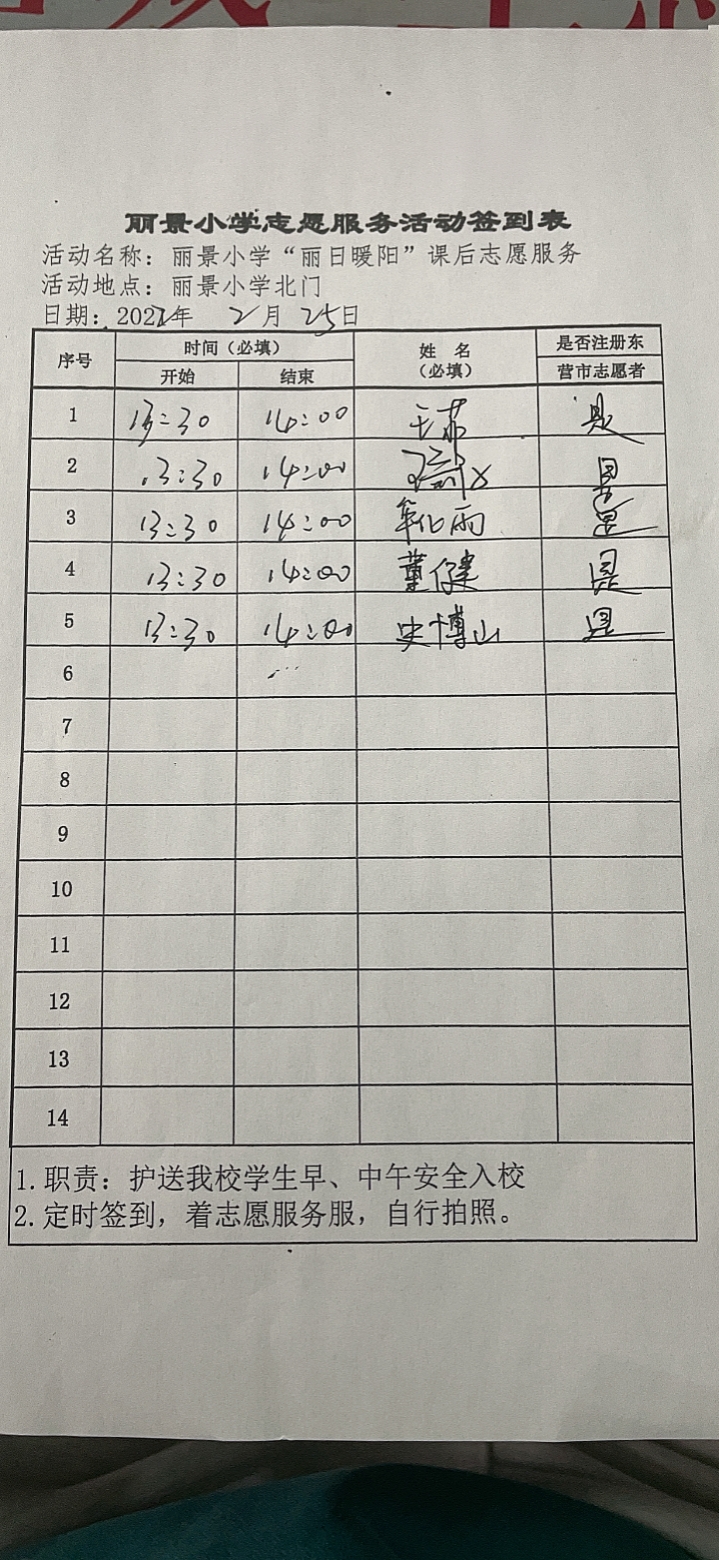 丽景小学志愿服务活动签到表
活动名称：丽景小学“丽日暖阳”课后志愿服务
活动地点：丽景小学北门
日期：2022年 2月 25日
序号 时间（必填） 姓名（必填） 是否注册东营市志愿者
开始 结束
1 13:30 14:00 是
2 13:30 14:00 是
3 13:30 14:00 是
4 13:30 14:00 董健 是
5 13:30 14:00 史博山 是
6
7
8
9
10
11
12
13
14
1.职责：护送我校学生早、中午安全入校
2.定时签到，着志愿服务服，自行拍照。